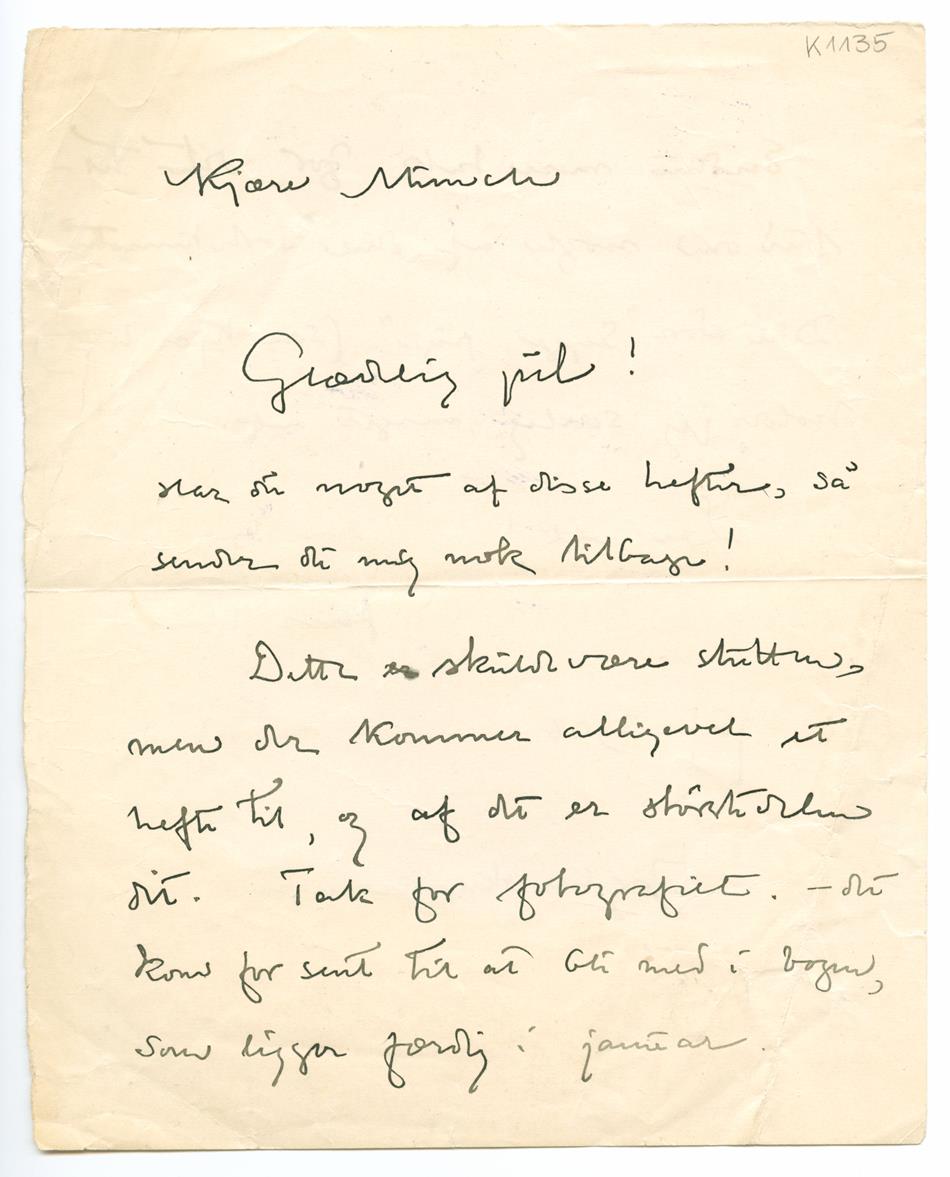 K1135
Kjære Munch
Glædelig jul!
Har du noget af disse hefter, så
sender du mig nok tilbage!
Dette skulde være slutten,
men der kommer alligevel et
hefte til, og af det er störstedelen
dit. Tak for fotografiet. – det
kom for sent til at bli med i bogen,
som ligger færdig i januar.